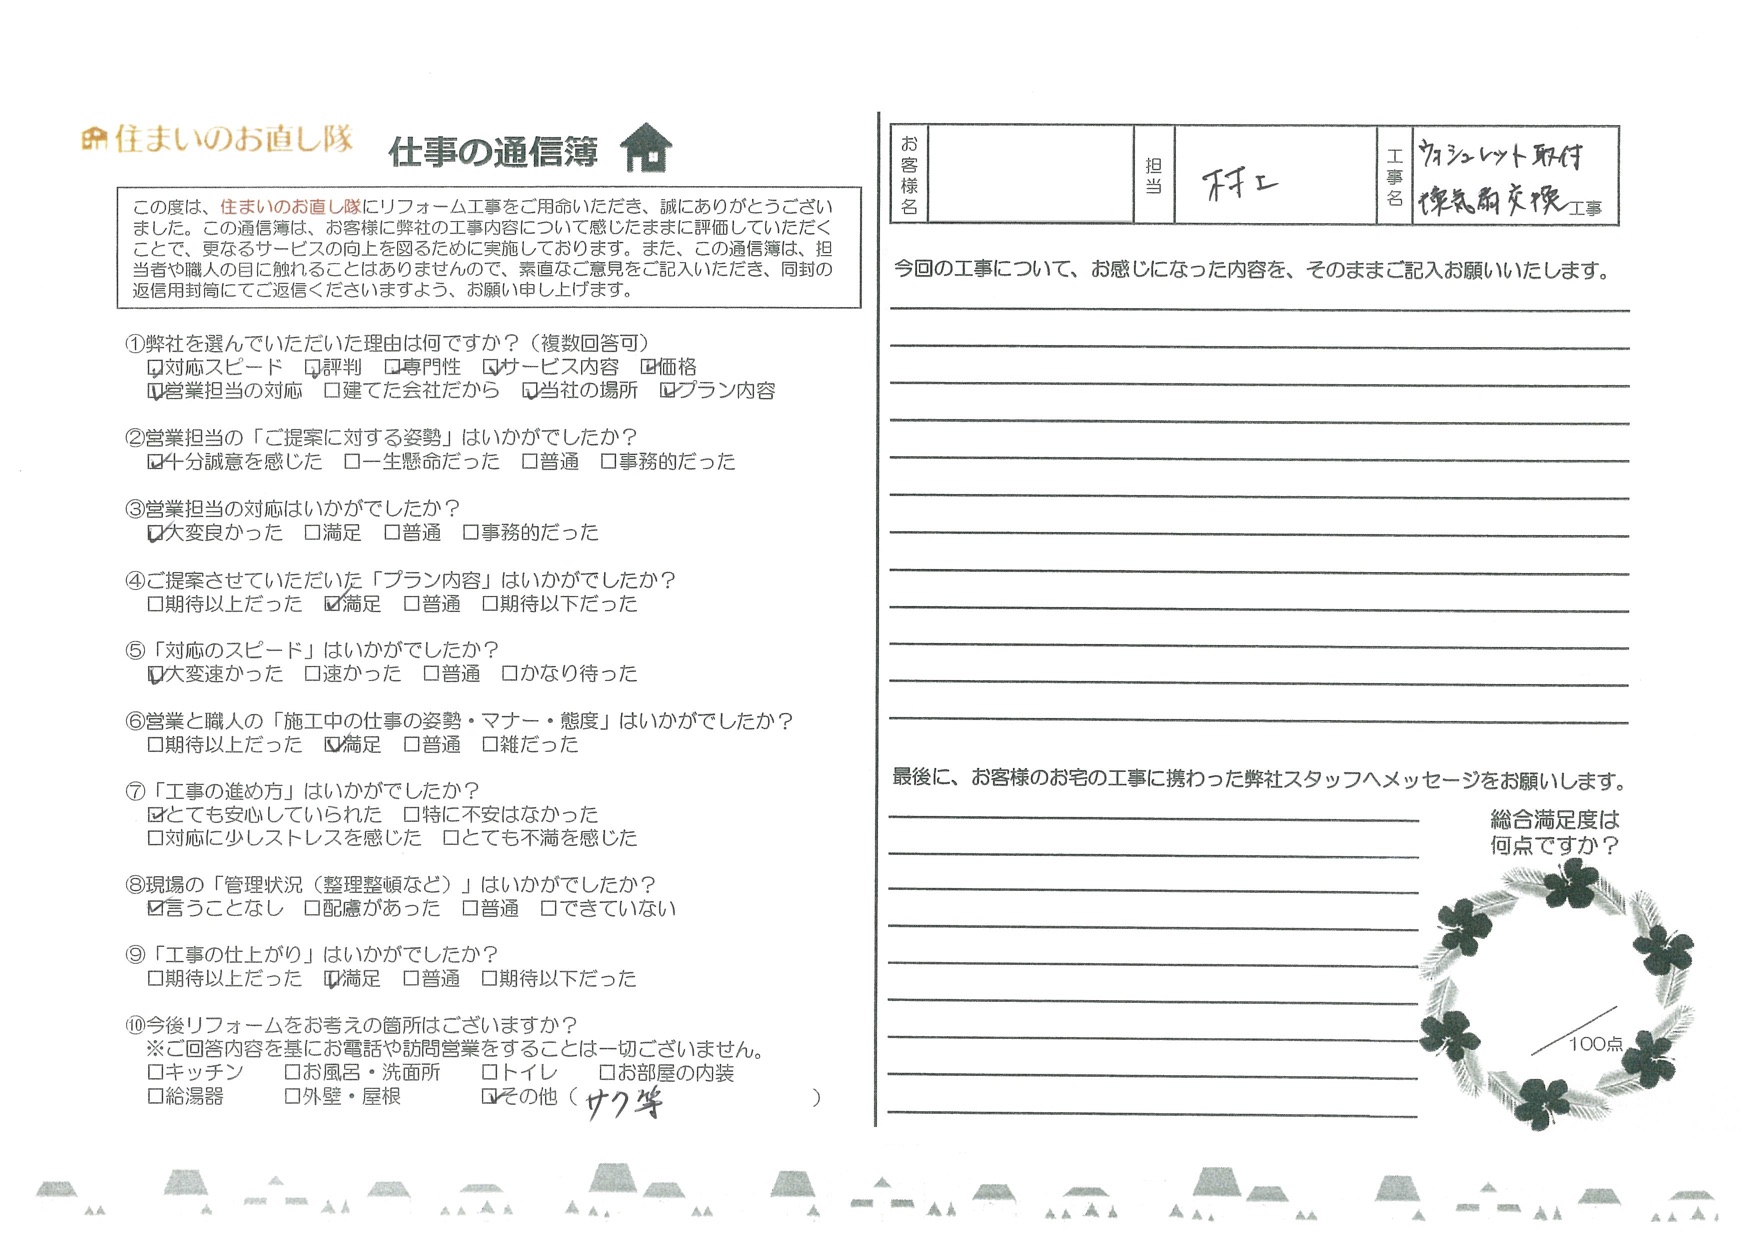 住まいのお直し隊
仕事の通信簿
この度は、住まいのお直し隊にリフォーム工事をご用命いただき、誠にありがとうござい
ました。この通信簿は、お客様に弊社の工事内容について感じたままに評価していただく
ことで、更なるサービスの向上を図るために実施しております。また、この通信簿は、担
当者や職人の目に触れることはありませんので、素直なご意見をご記入いただき、同封の
返信用封筒にてご返信くださいますよう、お願い申し上げます。
①弊社を選んでいただいた理由は何ですか？（複数回答可）
☑対応スピード ☑評判 ☑専門性 ☑サービス内容 ☑価格
☑営業担当の対応 □建てた会社だから ☑当社の場所 ☑プラン内容
②営業担当の「ご提案に対する姿勢」はいかがでしたか？
☑十分誠意を感じた □一生懸命だった □普通 □事務的だった
③営業担当の対応はいかがでしたか？
☑大変良かった □満足 □普通 □事務的だった
④ご提案させていただいた「プラン内容」はいかがでしたか？
□期待以上だった ☑満足 □普通 □期待以下だった
⑤「対応のスピード」はいかがでしたか？
☑大変速かった □速かった □普通 □かなり待った
⑥営業と職人の「施工中の仕事の姿勢・マナー・態度」はいかがでしたか？
□期待以上だった ☑満足 □普通 □雑だった
⑦「工事の進め方」はいかがでしたか？
☑とても安心していられた □特に不安はなかった
□対応に少しストレスを感じた □とても不満を感じた
⑧現場の「管理状況（整理整頓など）」はいかがでしたか？
☑言うことなし □配慮があった □普通 □できていない
⑨「工事の仕上がり」はいかがでしたか？
□期待以上だった ☑満足 □普通 □期待以下だった
⑩今後リフォームをお考えの箇所はございますか？
※ご回答内容を基にお電話や訪問営業をすることは一切ございません。
□キッチン □お風呂・洗面所 □トイレ □お部屋の内装
□給湯器 □外壁・屋根 ☑その他（サク等）
お客様名
担当 村上
工事名 ウォシュレット取付
換気扇交換工事
今回の工事について、お感じになった内容を、そのままご記入お願いいたします。
最後に、お客様のお宅の工事に携わった弊社スタッフへメッセージをお願いします。
総合満足度は
何点ですか？
／100点